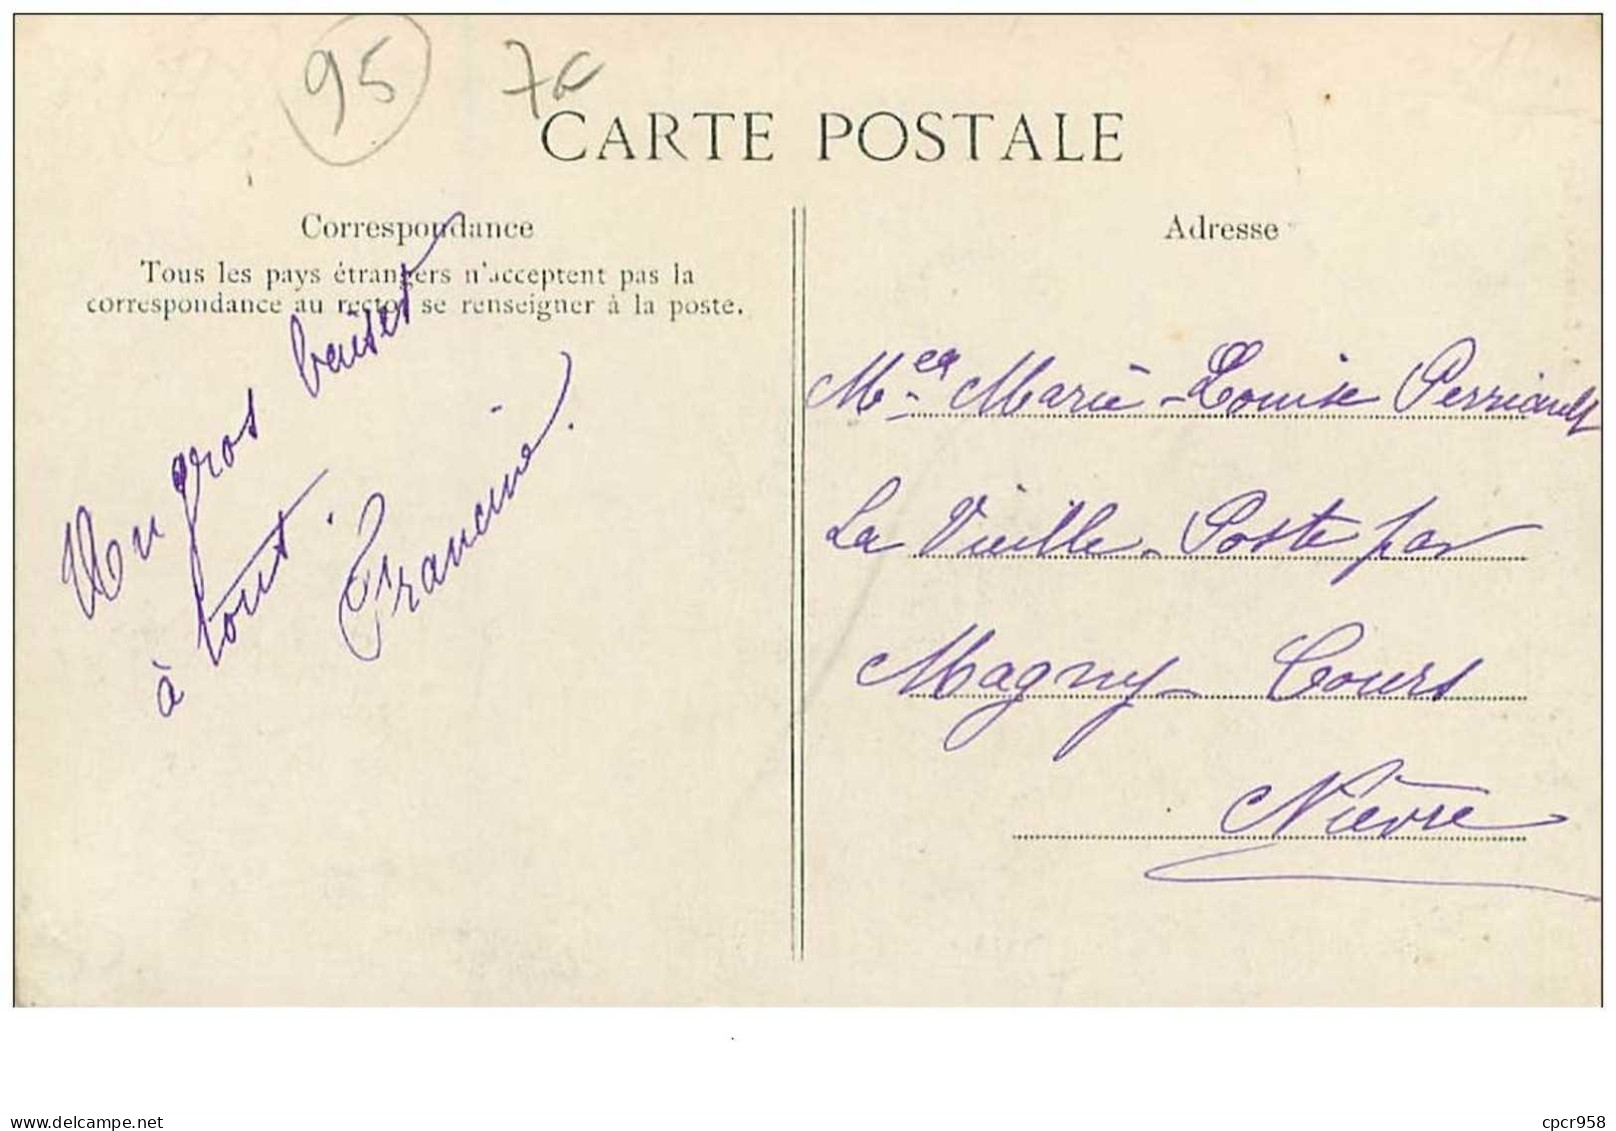 95
CARTE POSTALE
Correspondance
Tous les pays étrangers n'acceptent pas la
correspondance au recto, se renseigner à la poste.
Un gros baiser
à tout.
Francine.
Adresse
Marie-Louise
La Vieille-Poste par
Magny-Cours
Nièvre
www.delcampe.net
cpcr958